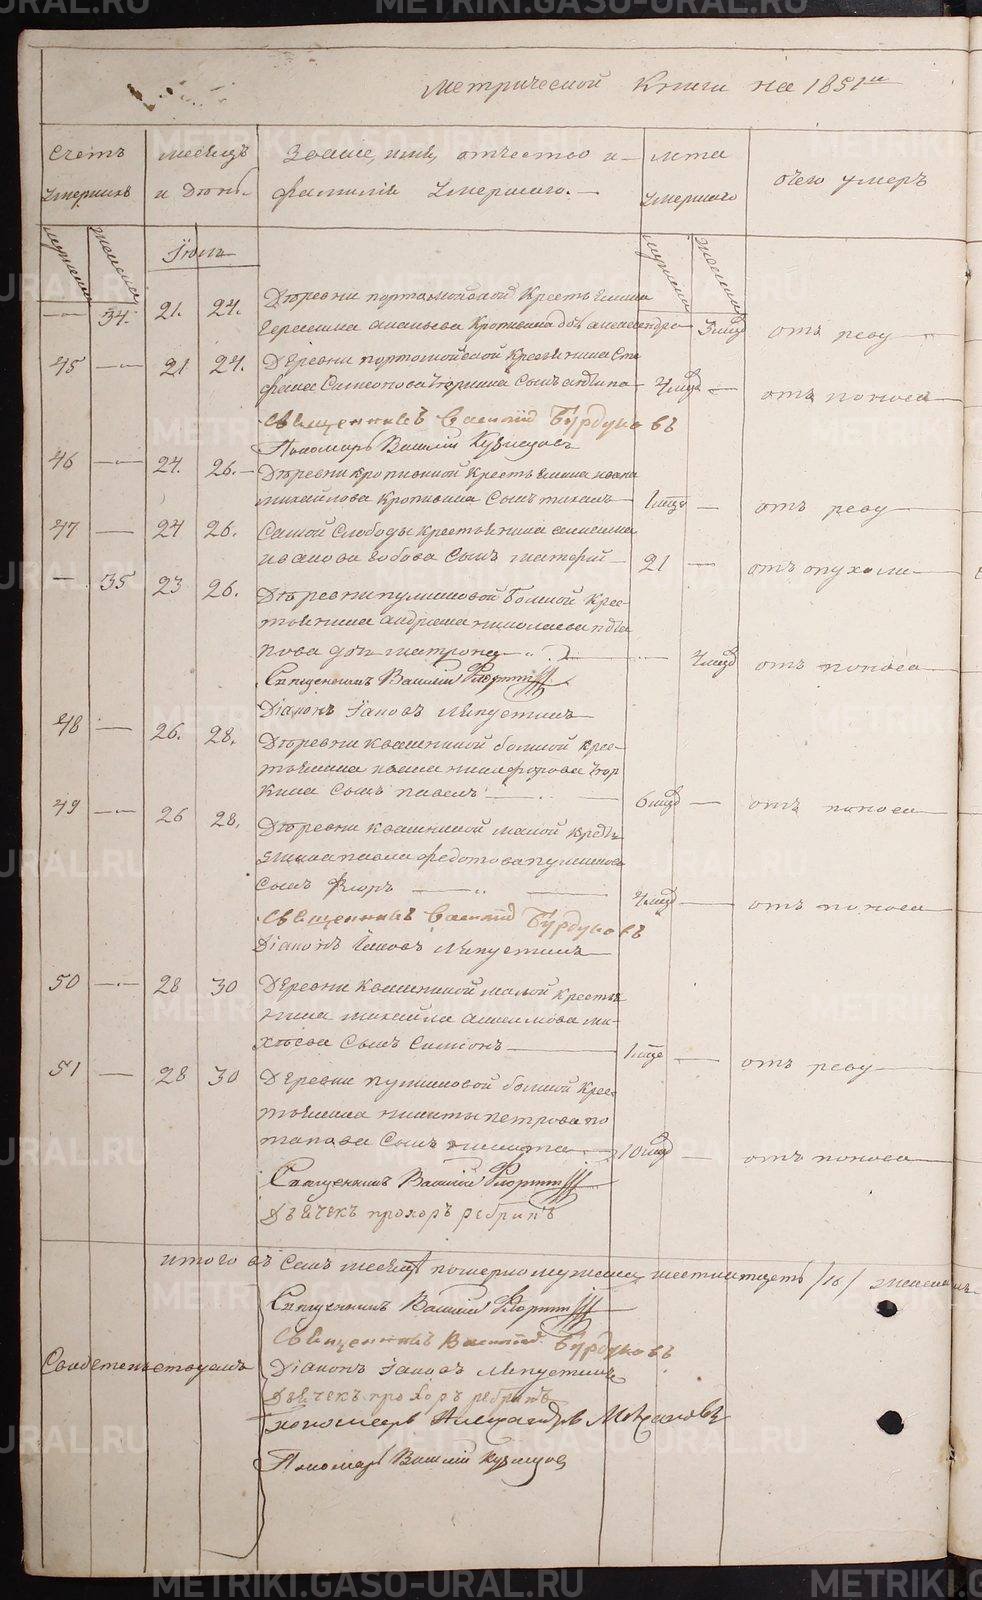 METRIKI.GASO-URAL.RU
Метрической Книги на 1851й
Счетъ умершихъ
месецъ и день
Звание, имя, отчество и фамилия умершаго.
лета умершаго
отчего умеръ
мужеска
женска
Iюль
мужеска
женска
34. 21. 24. Деревни портомойской Крестьянина
Герасима Ананьева Кропивина дочь александра 3 мцд отъ реву
45 21 24. Деревни портомойской Крестьянина Сте
фана Симеонова Сынъ антипа 4 мцд отъ поноса
Священникъ Василiй Бурдуковъ
Пономарь Василiй Кузнецовъ
46 24. 26. Деревни кропивиной Крестьянина ивана
михайлова Кропивина Сынъ михаилъ 1 мцд отъ реву
47 24 26. Самой Слободы крестьянина
иванова Сынъ матфей 21 отъ опухоли
35 23 26. Деревни пульниковой Большой Крес
тьянина андреяна николаева пота
пова дочь матрона 4 мцд отъ поноса
Священникъ Василiй Флорин
Дiаконъ Iаковъ Лепустинъ
48 26. 28. Деревни квашниной большой крес
тьянина ивана никифорова
кина Сынъ павелъ 6 мцд отъ поноса
49 26 28. Деревни квашниной малой кресть
янина павла федотова пульникова
Сынъ Флоръ 4 мцд отъ поноса
Священникъ Василiй Бурдуковъ
Дiаконъ Iаковъ Лепустинъ
50 28 30 Деревни Квашниной малой крестья
нина михайла ми
хѣева Сынъ Симеонъ 1 мцд отъ реву
51 28 30 Деревни пульниковой большой крес
тьянина никиты петрова по
тапова Сынъ никита 10 мцд отъ поноса
Священникъ Василiй Флорин
Дьячекъ прохоръ ребринъ
итого въ семъ месяце померло мужеска шестнатцеть /16/ женска
Священникъ Василiй Флорин
Священникъ Василiй Бурдуковъ
Свидетельствуемъ Дiаконъ Iаковъ Лепустинъ
Дьячекъ прохоръ ребринъ
пономарь Александръ
Пономарь Василiй Кузнецовъ